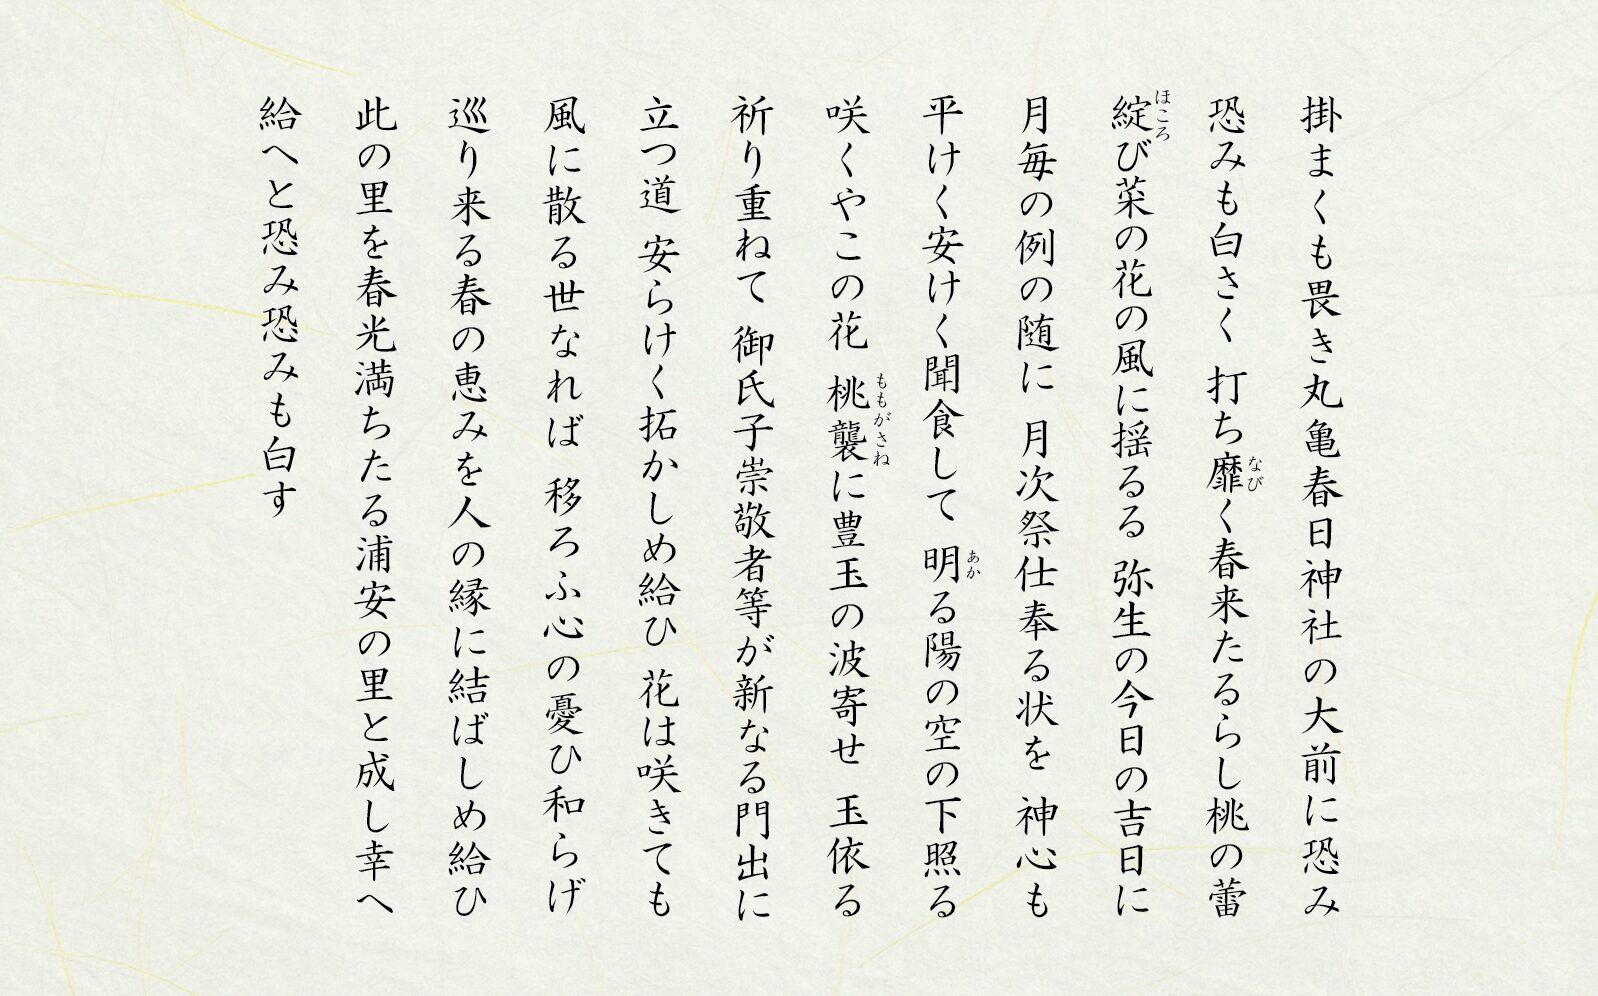 掛まくも畏き丸亀春日神社の大前に恐み
恐みも白さく 打ち靡く春来たるらし桃の蕾
綻び菜の花の風に揺るる 弥生の今日の吉日に
月毎の例の随に 月次祭仕奉る状を 神心も
平けく安けく聞食して 明る陽の空の下照る
咲くやこの花 桃襲に豊玉の波寄せ 玉依る
祈り重ねて 御氏子崇敬者等が新なる門出に
立つ道 安らけく拓かしめ給ひ 花は咲きても
風に散る世なれば 移ろふ心の憂ひ和らげ
巡り来る春の恵みを人の縁に結ばしめ給ひ
此の里を春光満ちたる浦安の里と成し幸へ
給へと恐み恐みも白す
なび
ほころ
あか
ももがさね